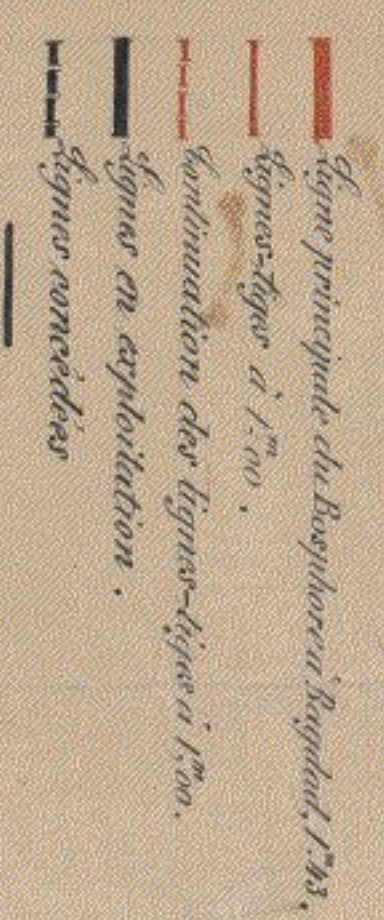 Ligne principale du Bosphore à Bagdad, 1ᵐ43.
Lignes-tiges à 1ᵐ00.
Continuation des lignes-tiges à 1ᵐ00.
Lignes en exploitation.
Lignes concédées